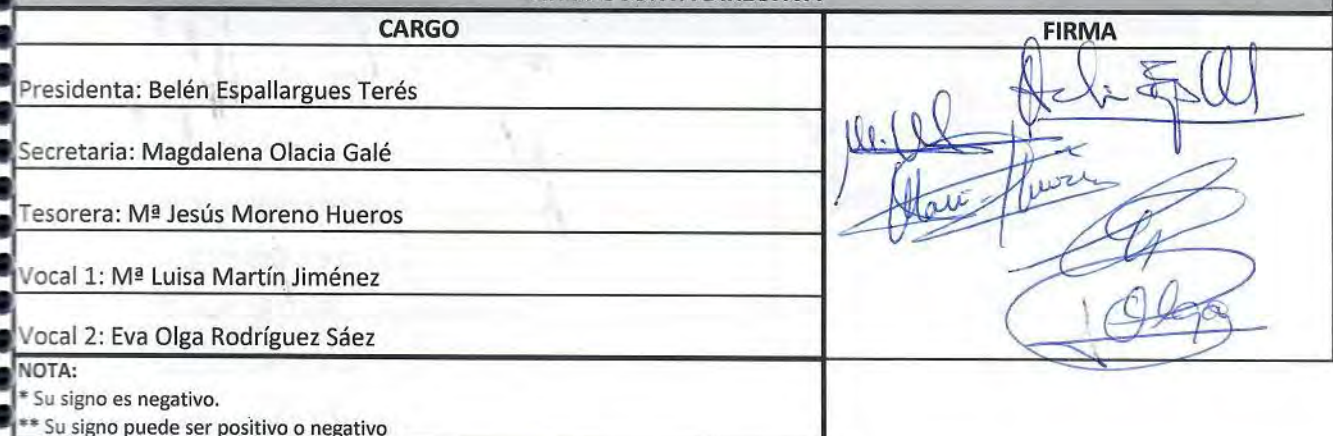 CARGO
FIRMA
Presidenta: Belén Espallargues Terés
Secretaria: Magdalena Olacia Galé
Tesorera: Mª Jesús Moreno Hueros
Vocal 1: Mª Luisa Martín Jiménez
Vocal 2: Eva Olga Rodríguez Sáez
Olga
NOTA:
* Su signo es negativo.
** Su signo puede ser positivo o negativo